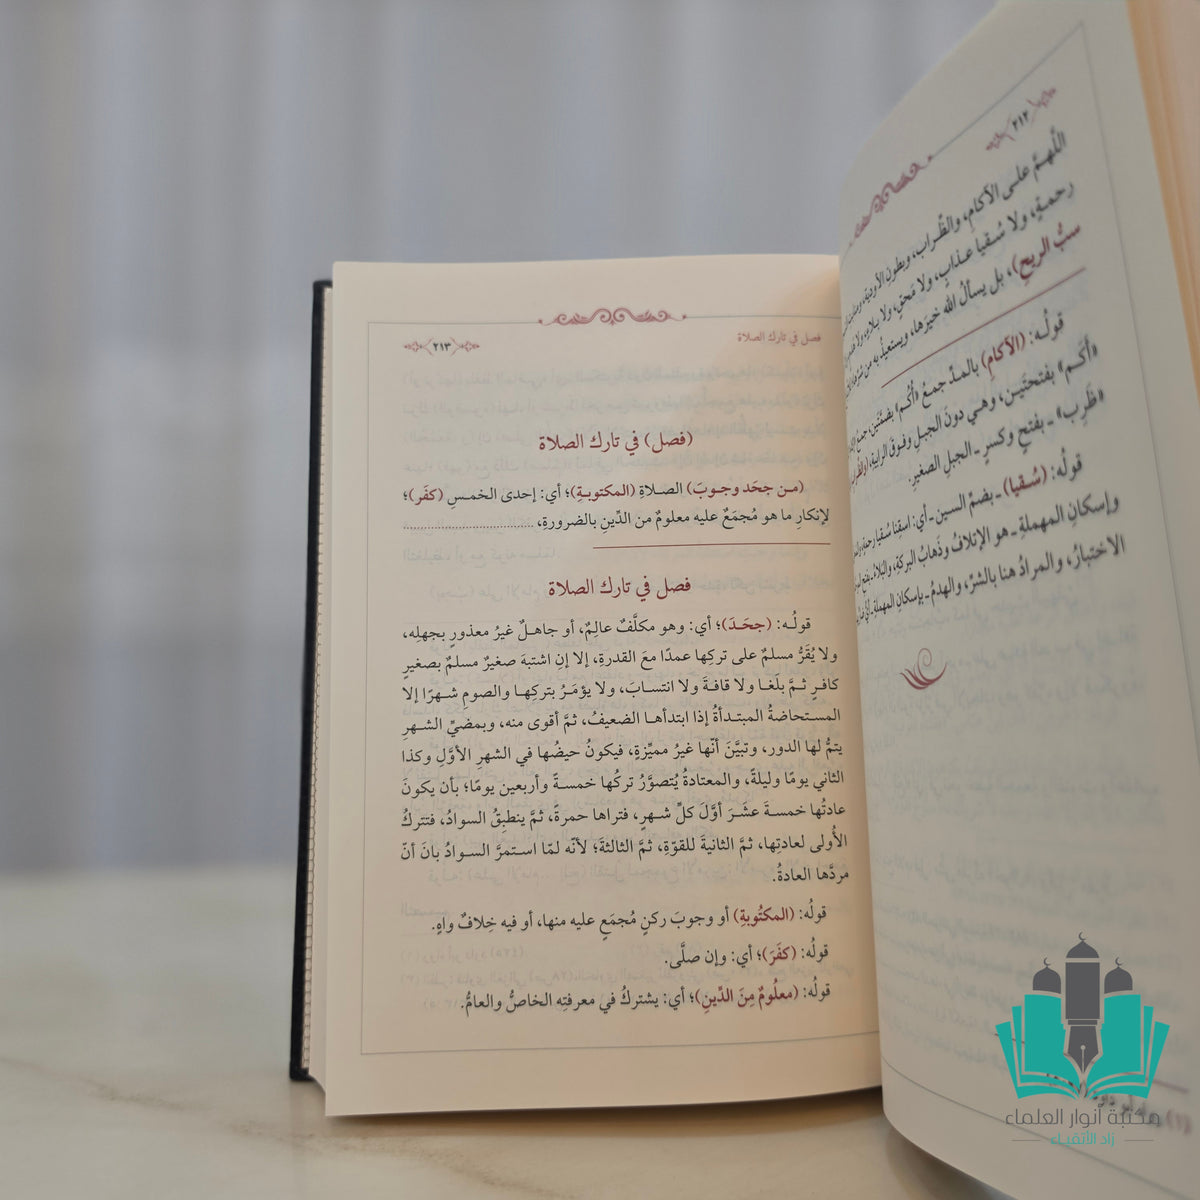 ٢١٢
اللَّهمَّ على الآكامِ، والظِّراب، وبطونِ الأوديةِ،
رحمةٍ، ولا سُقيا عذابٍ، ولا مَحقٍ، ولا بلاءٍ، ولا
سبُّ الريحِ)، بل يسألُ الله خيرَها، ويستعيذُ به من شرِّها
قولُه: (الآكامِ) بالمدِّ جمعُ «أُكُم» بضمَّتَين، جمعُ
«أَكَم» بفتحتَين، وهي دونَ الجبلِ وفوقَ الرابيةِ،
«ظَرِب» - بفتحٍ وكسرٍ - الجبلِ الصغيرِ.
قولُه: (سُقيا) - بضمِّ السين - أي: اسقِنا سُقيا رحمةٍ،
وإسكانِ المهملةِ - هو الإتلافُ وذَهابُ البركةِ، والبَلاء - بفتح
الاختبارُ، والمرادُ هنا بالشرِّ، والهدمُ - بإسكانِ المهملةِ -
فصل في تارك الصلاة
٢١٣
(فصل) في تارك الصلاة
(مـن جحَد وجـوبَ) الصـلاةِ (المكتوبـةِ)؛ أي: إحدى الخمـسِ (كفَر)؛
لإنكارِ ما هو مُجمَعٌ عليه معلومٌ من الدِّينِ بالضرورةِ، ....................................
فصل في تارك الصلاة
قولُـه: (جحَـدَ)؛ أي: وهو مكلَّفٌ عالِمٌ، أو جاهـلٌ غيرُ معذورٍ بجهلِه،
ولا يُقَرُّ مسلمٌ على تركِها عمدًا معَ القدرةِ، إلا إنِ اشتبهَ صغيرُ مسلمٍ بصغيرِ
كافـرٍ ثـمَّ بلَغـا ولا قافةَ ولا انتسـابَ، ولا يؤمَـرُ بتركِهـا والصومِ شـهرًا إلا
المسـتحاضةُ المبتـدأةُ إذا ابتدأهـا الضعيفُ، ثـمَّ أقوى منه، وبمضيِّ الشـهرِ
يتمُّ لها الدور، وتبيَّنَ أنّها غيرُ مميِّزةٍ، فيكونُ حيضُها في الشهرِ الأوَّلِ وكذا
الثاني يومًا وليلةً، والمعتادةُ يُتصوَّرُ تركُها خمسـةً وأربعين يومًا؛ بأن يكونَ
عادتُها خمسـةَ عشَـرَ أوَّلَ كلِّ شـهرٍ، فتراها حمرةً، ثـمَّ ينطبِقُ السوادُ، فتتركُ
الأُولى لعادتِها، ثـمَّ الثانيةَ للقوّةِ، ثـمَّ الثالثةَ؛ لأنّه لمّا اسـتمرَّ السـوادُ بانَ أنّ
مردَّها العادةُ.
قولُه: (المكتُوبةِ) أو وجوبَ ركنٍ مُجمَعٍ عليه منها، أو فيه خِلافٌ واهٍ.
قولُه: (كفَرَ)؛ أي: وإن صلَّى.
قولُه: (معلُومٌ مِنَ الدِّينِ)؛ أي: يشتركُ في معرفتِه الخاصُّ والعامُّ.
مكتبة أنوار العلماء
زاد الأتقياء